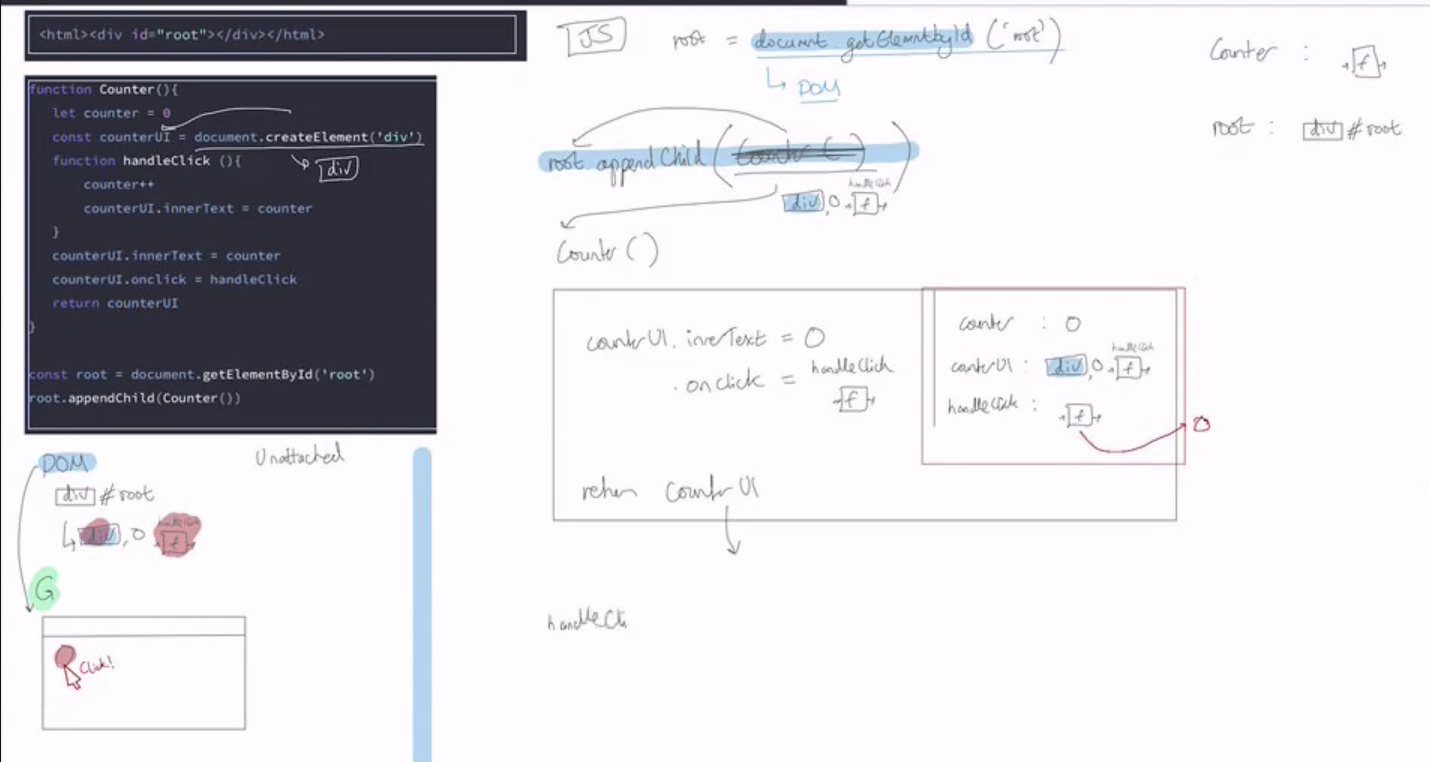 <html><div id="root"></div></html>
function Counter(){
let counter = 0
const counterUI = document.createElement('div')
div
function handleClick (){
counter++
counterUI.innerText = counter
}
counterUI.innerText = counter
counterUI.onclick = handleClick
return counterUI
}
const root = document.getElementById('root')
root.appendChild(Counter())
DOM
Unattached
div #root
handleClick
div, 0 f
G
Click!
JS
root = document.getElementbyId ('root')
DOM
root.appendChild (Counter ())
handleClick
div, 0 f
Counter ()
counterUI.innerText = 0
.onclick = handleClick
f
return CounterUI
counter : 0
handleClick
counterUI : div, 0 f
handleClick : f
handleCli
Counter : f
root : div #root